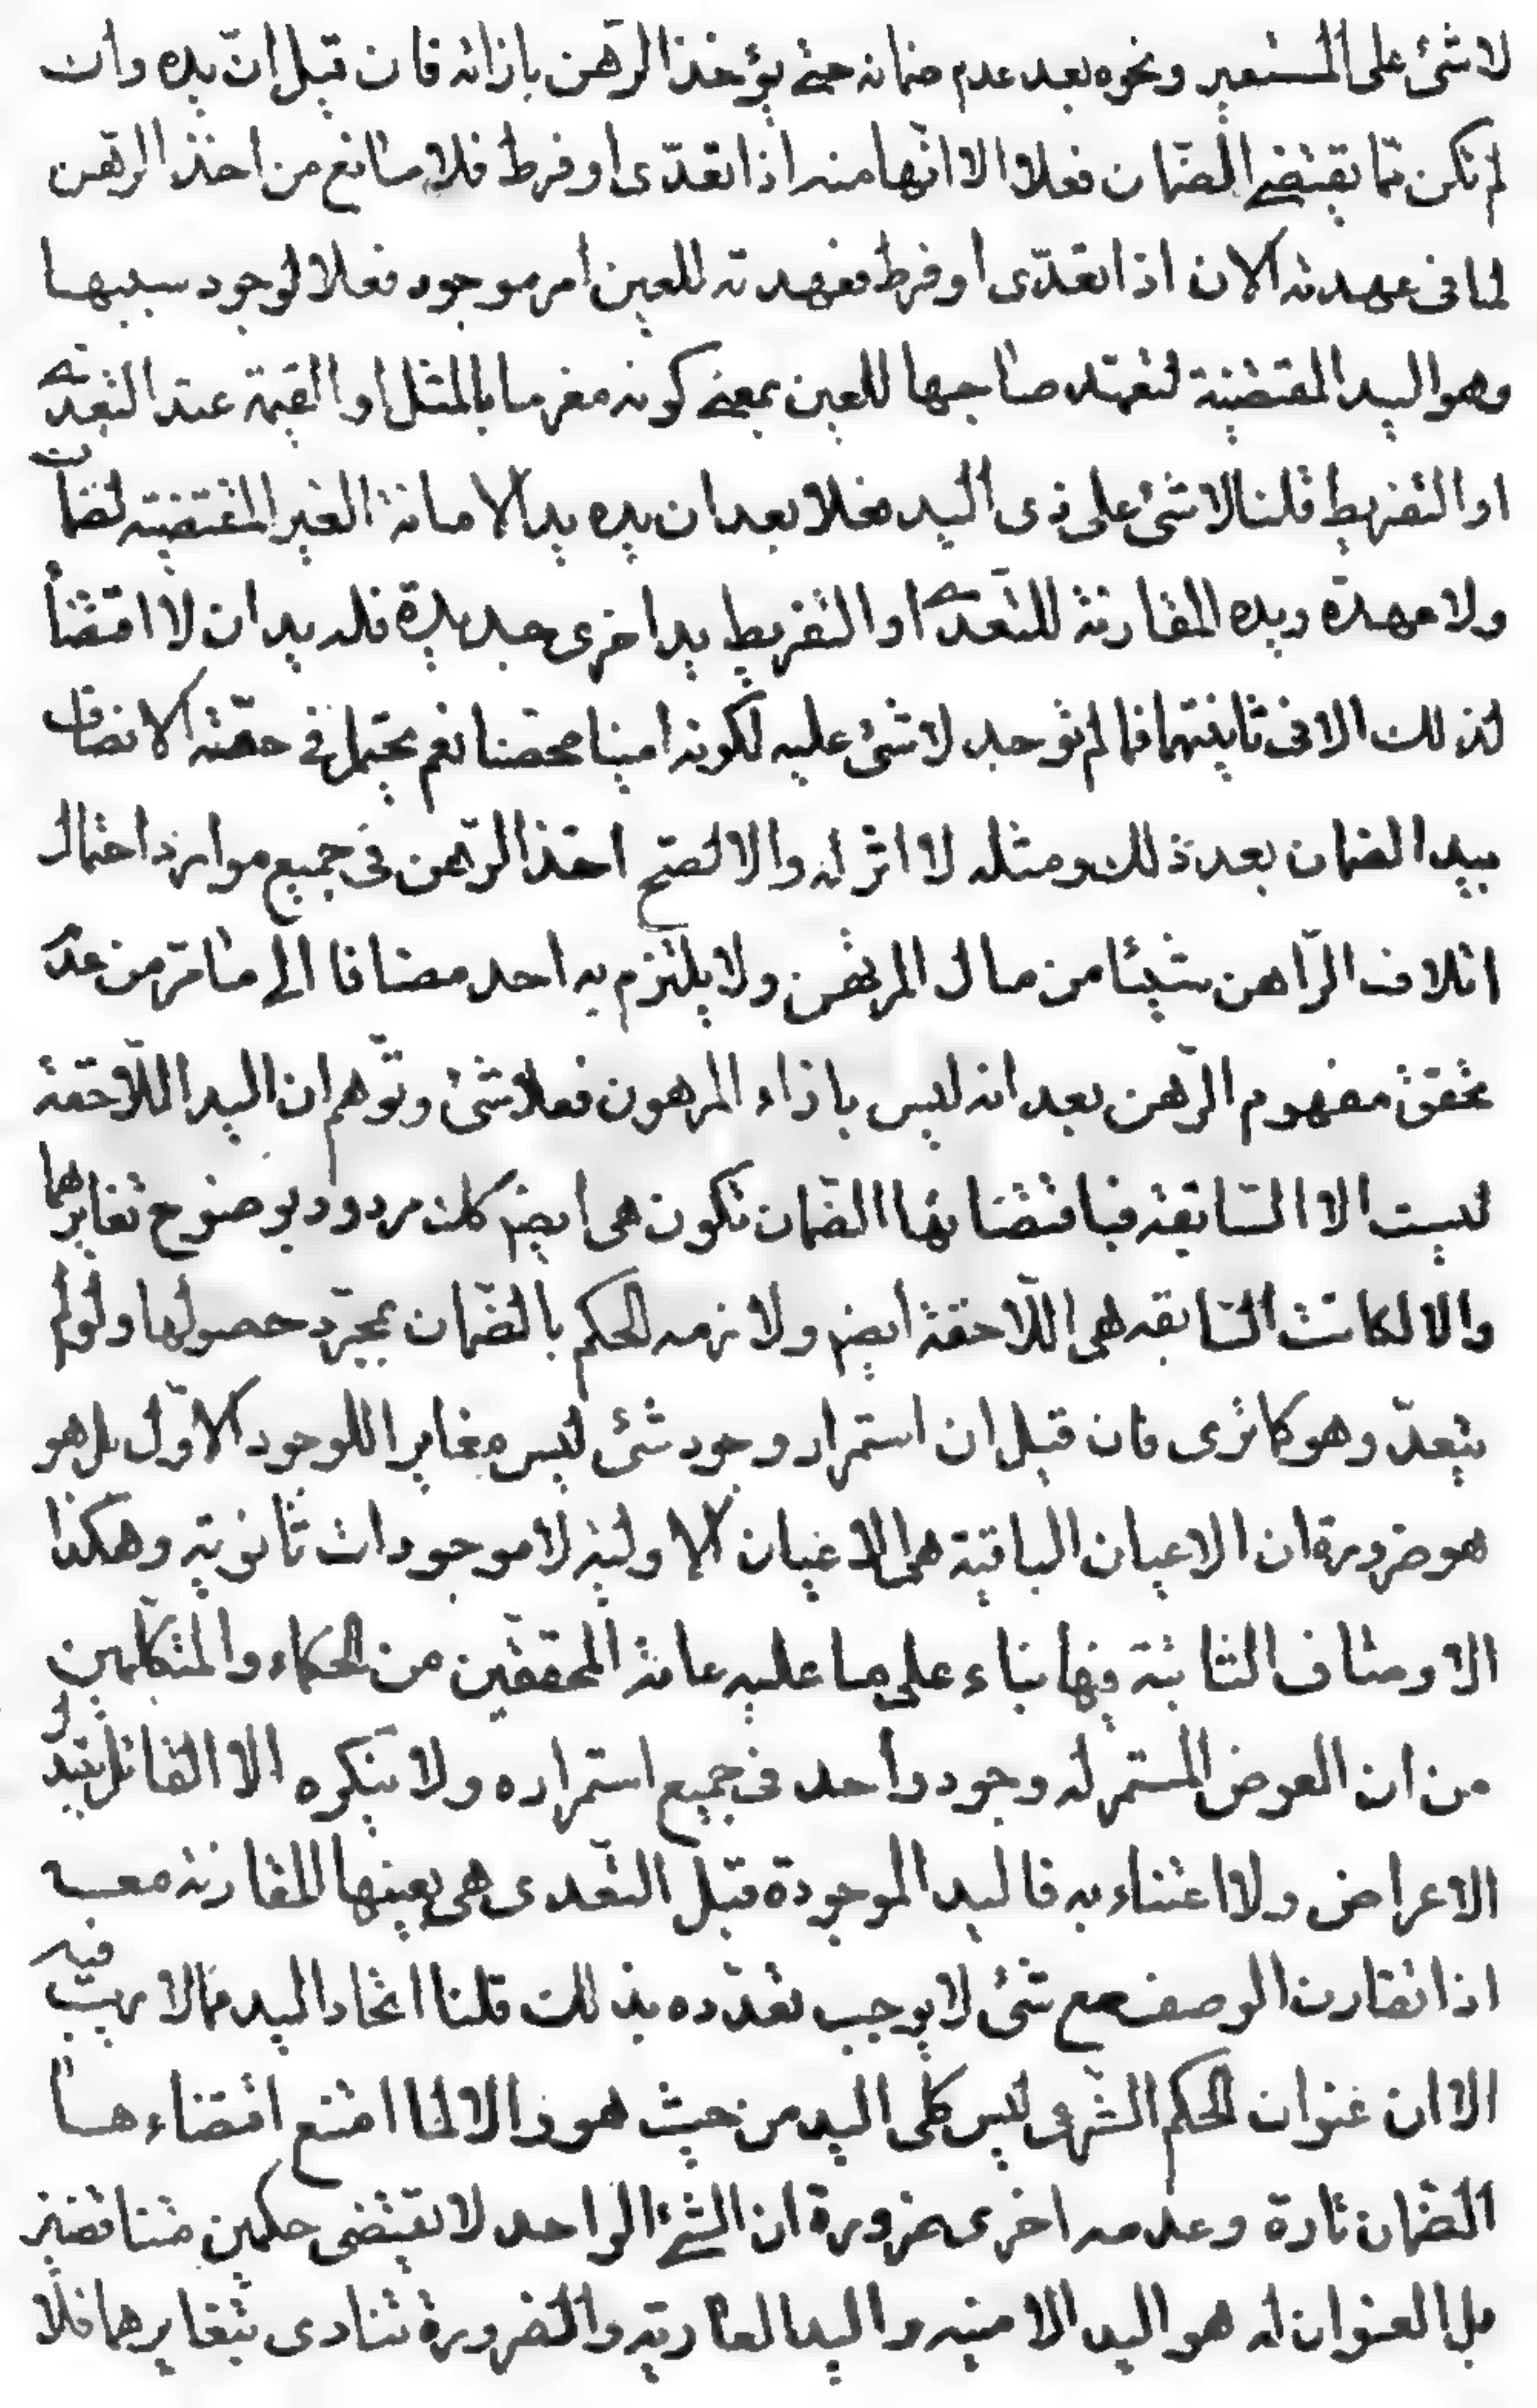 لا شئ على المستعير ونحوه بعد عدم ضمانه حتى يؤخذ الرّهن بازائه فان قيل انّ يده وان
لم تكن ممّا يقتضى الضّمان فعلا الا انّها منه اذا تعدّى او فرط فلا مانع من اخذ الرّهن
لما فى عهدته الان اذا تعدّى او فرط فعهدته للعين امر موجود فعلا لوجود سببها
وهو اليد المقتضية لتعهّد صاحبها للعين بمعنى كونه مغرما بالمثل او القيمة عند التعدّى
او التفريط قلنا لا شئ على ذى اليد فعلا بعد ان يده يد الامانة الغير المقتضية لضمان
ولا عهدة ويده المقارنة للتعدّى او التفريط يد اخرى جديدة فله يدان لا اقتضاء
لذلك الا فى ثانيتهما فما لم توجد لا شئ عليه لكونه امينا محضا نعم يحتمل فى حقّه الاتصاف
بيد الضمان بعد ذلك ومثله لا اثر له والا لصحّ اخذ الرّهن فى جميع موارد احتمال
اتلاف الرّاهن شيئا من مال المرتهن ولا يلتزم به احد مضافا الى ما مرّ من عدم
تحقق مفهوم الرّهن بعد انه ليس بازاء المرهون فعلا شئ وتوّهم ان اليد اللّاحقة
ليست الا السّابقة فباقتضائها الضّمان تكون هى ايضم كك مردود بوضوح تغايرهما
والا لكانت السّابقه هى اللّاحقة ايضم ولازمه الحكم بالضّمان بمجرّد حصولها ولو لم
يتعدّ وهو كما ترى فان قيل ان استمرار وجود شئ ليس مغايرا للوجود الاوّل بل هو
هو ضرورة ان الاعيان الباقية هى الاعيان الاولية لا موجودات ثانوية وهكذا
الاوصاف الثابتة فيها بناء على ما عليه عامة المحققين من الحكماء والمتكلّمين
من ان العرض المستمر له وجود واحد فى جميع استمراره ولا ينكره الا القائل بتبدل
الاعراض ولا اعتناء به فاليد الموجودة قبل التّعدى هى بعينها المقارنة معه
اذ اتقارن الوصف مع شئ لا يوجب تعدّده بذلك قلنا اتحاد اليد ممّا لا ريب فيه
الا ان عنوان الحكم الشّرعى ليس كلى اليد من حيث هو والا لما امتنع اقتضاءها
الضّمان تارة وعدمه اخرى ضرورة ان الشّئ الواحد لا يقتضى حكمين متناقضين
بل العنوان له هو اليد الامنيه واليد العادية والضّرورة تنادى بتغايرهما فلا